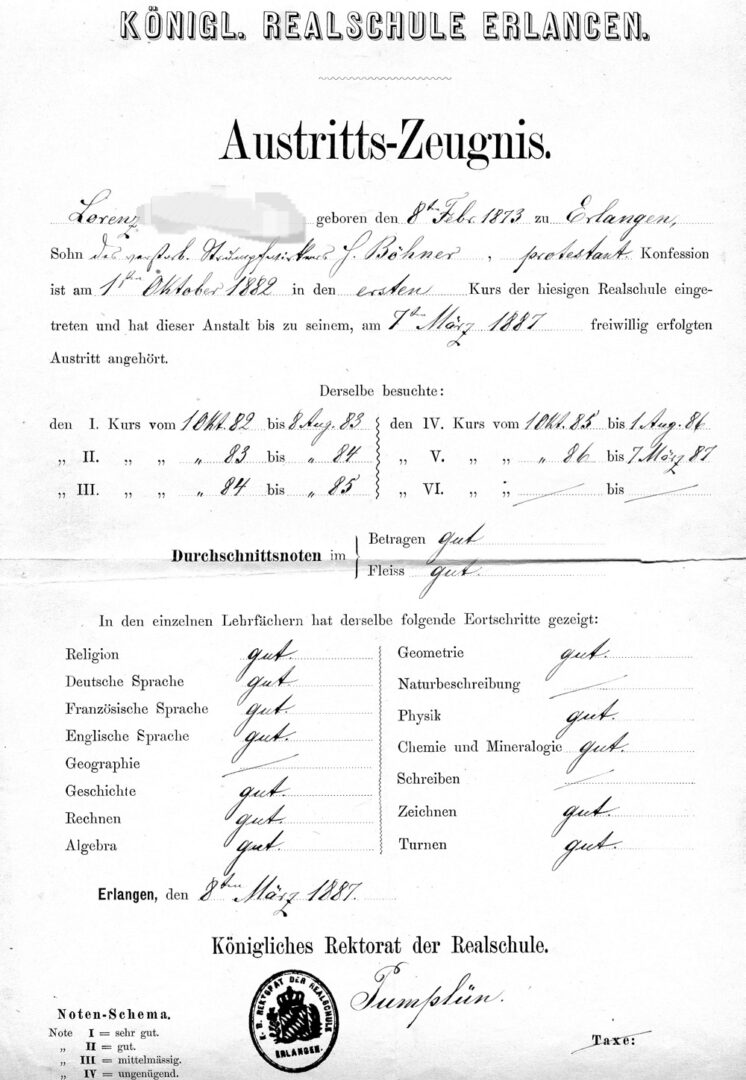 KÖNIGL. REALSCHULE ERLANGEN.
Austritts-Zeugnis.
Lorenz geboren den 8ten Febr. 1873 zu Erlangen,
Sohn des verstorb. Strumpfwirkers J. Böhner, protestant. Konfession
ist am 1ten Oktober 1882 in den ersten Kurs der hiesigen Realschule einge-
treten und hat dieser Anstalt bis zu seinem, am 7ten März 1887 freiwillig erfolgten
Austritt angehört.
Derselbe besuchte:
den I. Kurs vom 1 Okt. 82 bis 8 Aug. 83 den IV. Kurs vom 1 Okt. 85 bis 1 Aug. 86
„ II. „ „ „ 83 bis „ 84 „ V. „ „ „ 86 bis 7 März 87
„ III. „ „ „ 84 bis „ 85 „ VI. „ „ — bis —
Durchschnittsnoten im
Betragen gut
Fleiss gut.
In den einzelnen Lehrfächern hat derselbe folgende Eortschritte gezeigt:
Religion gut.
Deutsche Sprache gut.
Französische Sprache gut.
Englische Sprache gut.
Geographie —
Geschichte gut.
Rechnen gut.
Algebra gut.
Geometrie gut.
Naturbeschreibung —
Physik gut.
Chemie und Mineralogie gut.
Schreiben —
Zeichnen gut.
Turnen gut.
Erlangen, den 8ten März 1887.
Königliches Rektorat der Realschule.
Pumplün.
K. B. REKTORAT DER REALSCHULE
ERLANGEN.
Noten-Schema.
Note I = sehr gut.
„ II = gut.
„ III = mittelmässig.
„ IV = ungenügend.
Taxe: